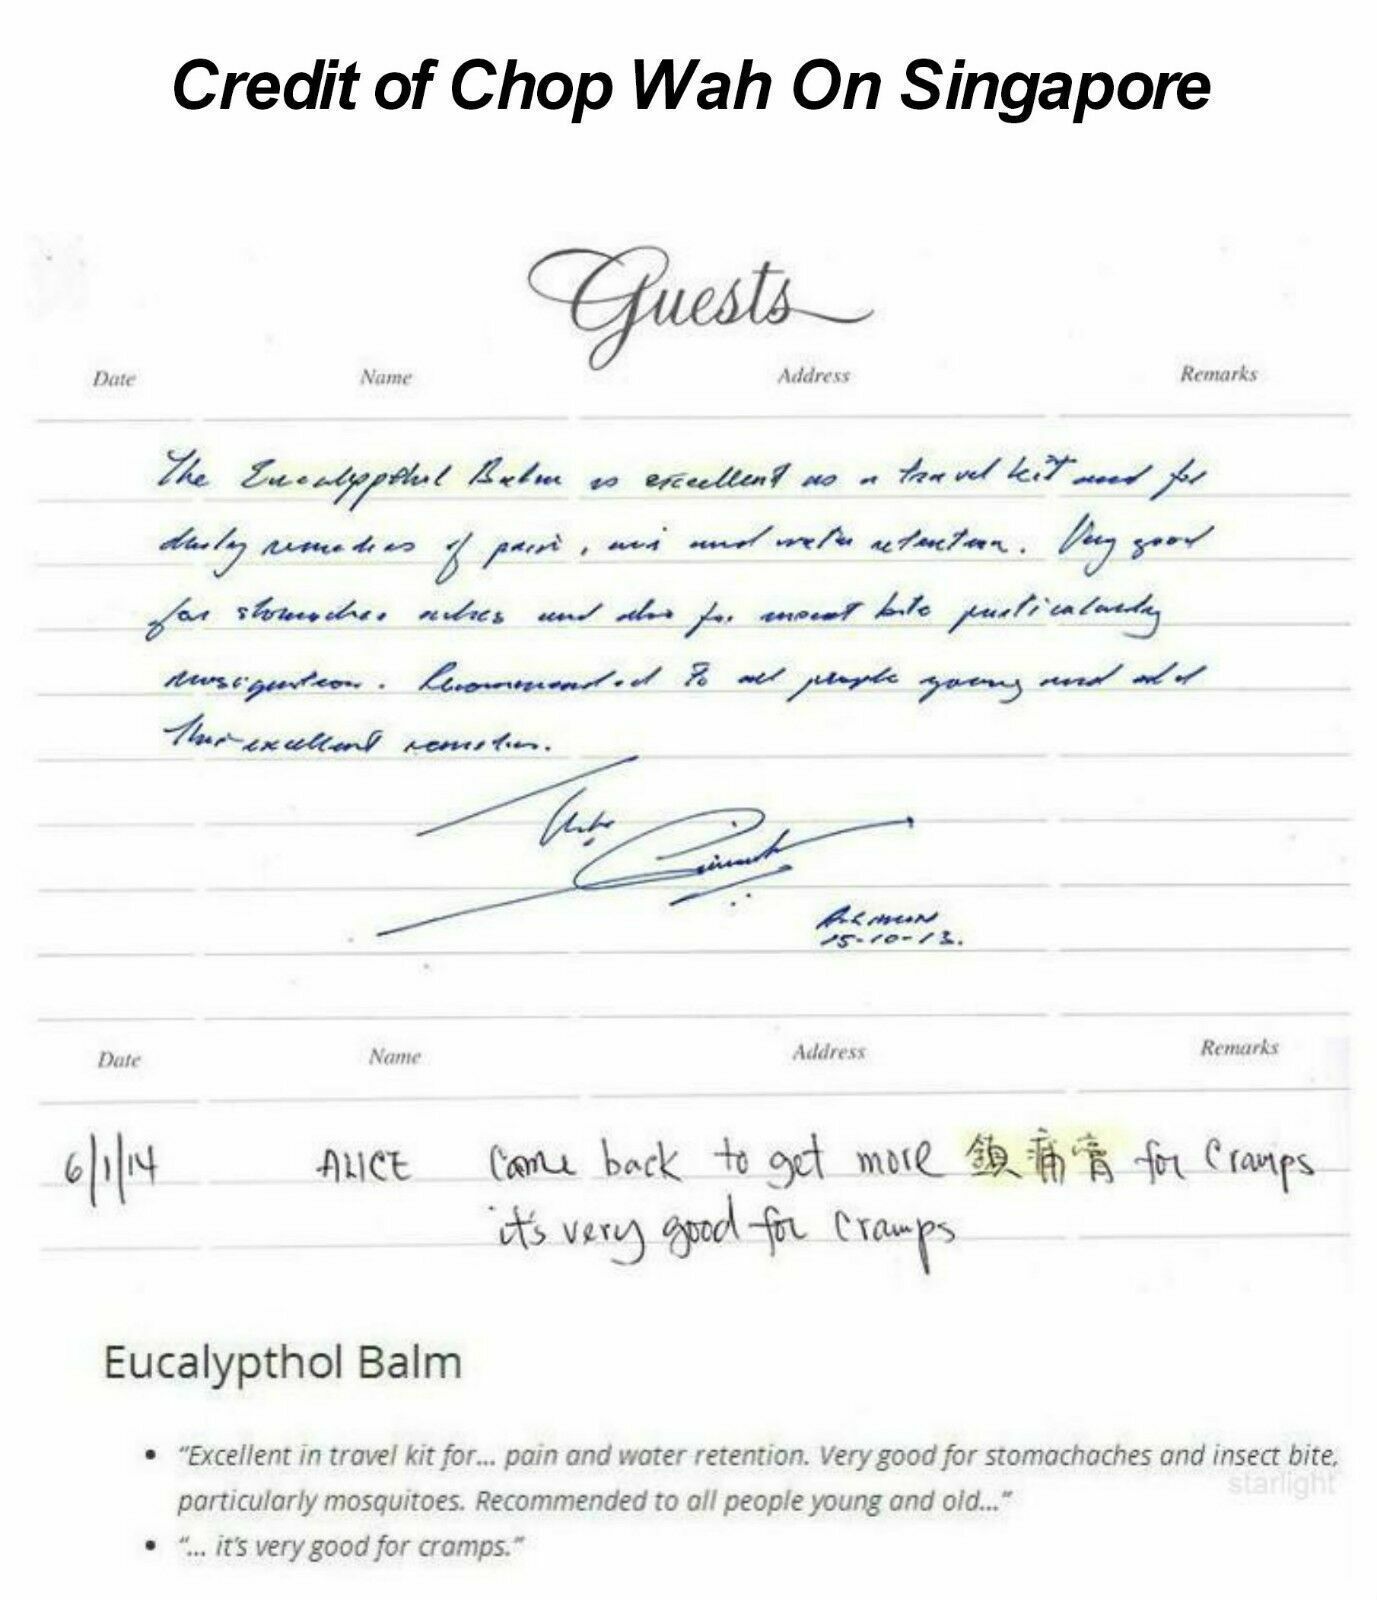 Credit of Chop Wah On Singapore
Guests
Date Name Address Remarks
The Eucalypthol Balm is excellent as a travel kit and for
daily remedies of pain, and water retention. Very good
for stomaches aches and also for insect bite particularly
Recommended to all people young and old
this excellent remedies.
15-10-13.
Date Name Address Remarks
6/1/14 ALICE Came back to get more 鎮痛膏 for cramps
it's very good for cramps
Eucalypthol Balm
• "Excellent in travel kit for... pain and water retention. Very good for stomachaches and insect bite,
starlight
particularly mosquitoes. Recommended to all people young and old..."
• "... it's very good for cramps."